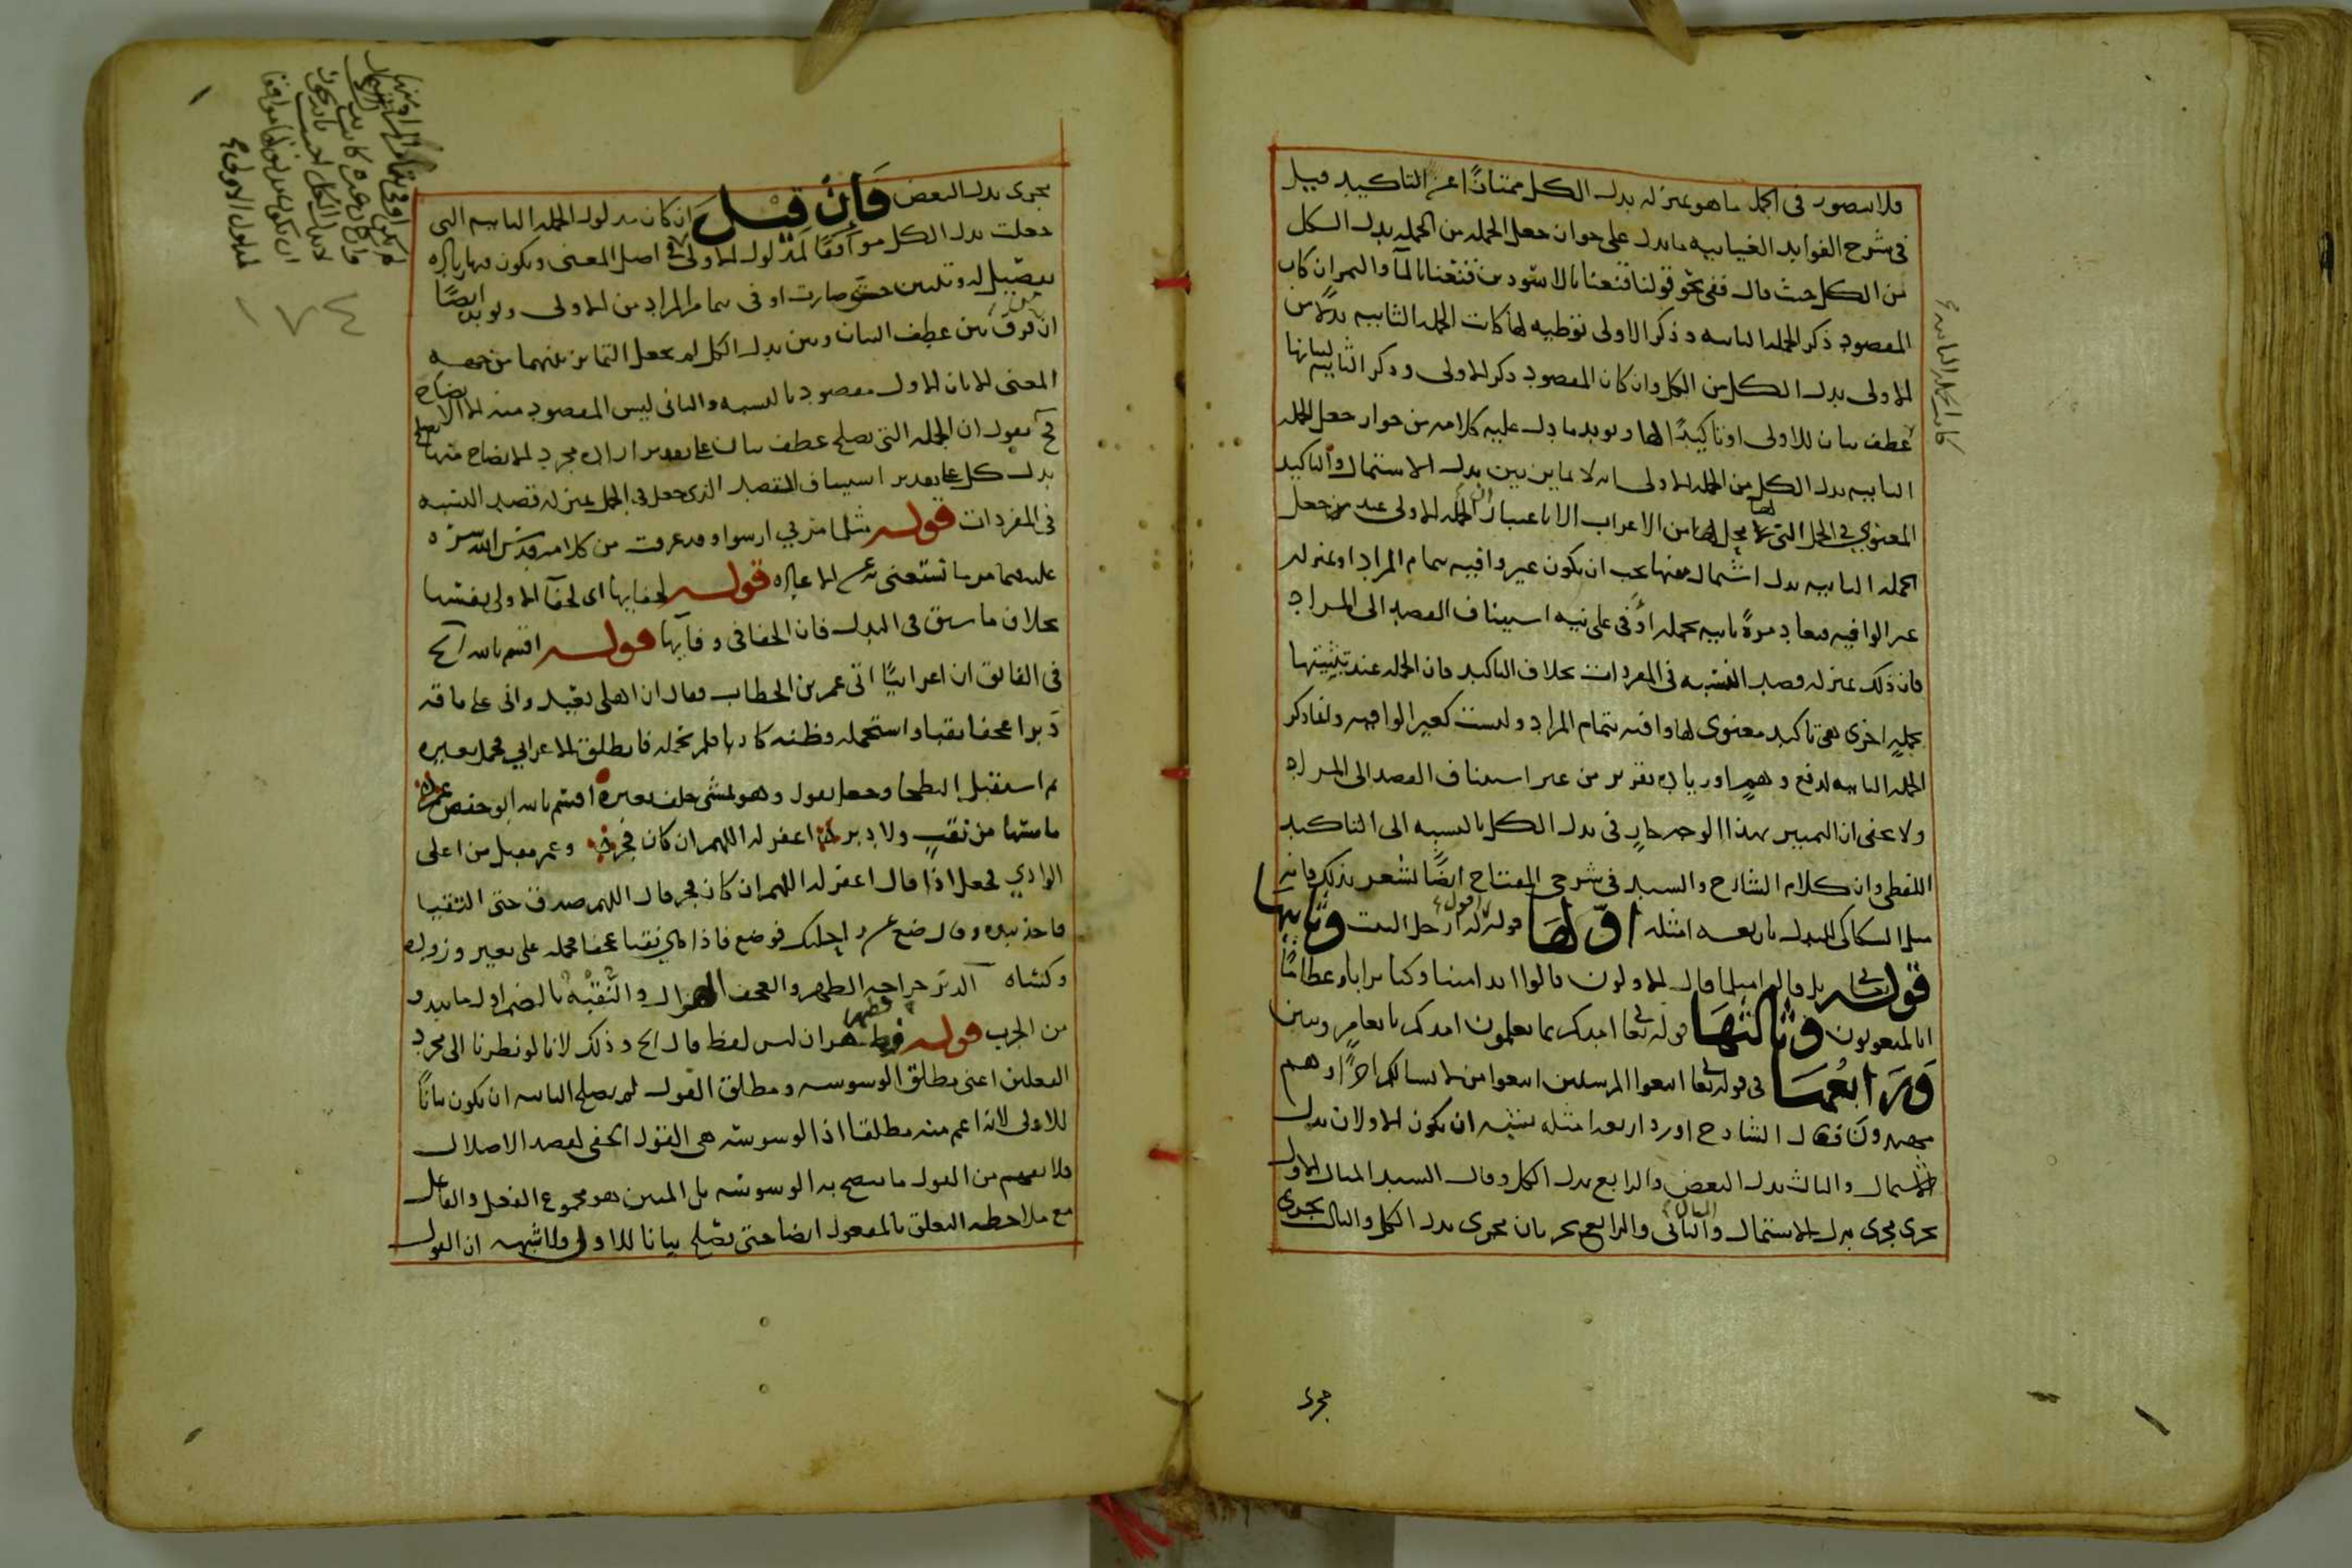 فلا يتصور في الجمل ما هو بمنزلة بدل الكل ممتازًا عن التاكيد قيل
في شرح الفوايد الغياثيه ما يدل على جواز جعل الجمله من الجمله بدل الكل
من الكل حيث قال ففي نحو قولنا قنعنا بالاسودين قنعنا بالمآ والتمر ان كان
المقصود ذكر الجمله الثانيه و ذكر الاولى توطيه لها كانت الجمله الثانيه بدلًا من
الاولى بدل الكل من الكل وان كان المقصود ذكر الاولى وذكر الثانيه لبيانها
عطف بيان للاولى او تاكيدًا لها ويويد ما دل عليه كلامه من جواز جعل الجمله
الثانيه بدل الكل من الجمله الاولى انه لا تمايز بين بدل الاشتمال والتاكيد
المعنوي في الجمل التي لا محل لها من الاعراب الا باعتبار ان الجمله الاولى عند من جعل
الجمله الثانيه بدل اشتمال منها يجب ان يكون غير وافيه بتمام المراد او بمنزله
غير الوافيه فيعاد مرةً ثانيه بجمله اوفى على نيه استيناف القصد الى المراد
فان ذلك بمنزله قصد النسبه في المفردات بخلاف التاكيد فان الجمله عند تثنيتها
بجملةٍ اخرى هي تاكيد معنوي لها وافيه بتمام المراد وليست كغير الوافيه وانما ذكر
الجمله الثانيه لدفع وهمٍ او زياده تقرير من غير استيناف القصد الى المراد
ولا يخفى ان التمييز بهذا الوجه جارٍ في بدل الكل بالنسبه الى التاكيد
اللفظي وان كلام الشارح والسيد في شرحي المفتاح ايضًا يشعر بذلك فانه
مثل السكاكي للبدل باربعه امثله اوّلها قوله اقول له ارحل البيت وثانيها
قوله تعالى بل قالوا مثل ما قال الاولون قالوا ائذا متنا وكنا ترابا وعظامًا
ائنا لمبعوثون وثالثها قوله تعالى امدكم بما تعلمون امدكم بانعامٍ وبنين
وَرَابِعُهَا في قوله تعالى اتبعوا المرسلين اتبعوا من لا يسالكم اجرًا وهم
مهتدون فقال الشارح اورد اربعه امثله ينبه ان يكون الاولان بدل
الاشتمال والثالث بدل البعض والرابع بدل الكل وقال السيد المثال الاول
يجري مجرى بدل الاشتمال والثاني والرابع يجريان مجرى بدل الكل والثالث يجري
مجرى
كانت الجمله الثانيه
يجرى بدل البعض فَاِنْ قيل ان كان مدلول الجمله الثانيه التي
جعلت بدل الكل موافقًا لمدلول الاولى في اصل المعنى ويكون فيها زياده
تفصيل له وتبيين حتى صارت اوفى بتمام المراد من الاولى ويويد ايضًا
ان من فرق بين عطف البيان وبين بدل الكل لم يجعل التمايز بينهما من جهه
المعنى الا بان الاول مقصود بالنسبه والثاني ليس المقصود منه الا الايضاح
فح نقول ان الجمله التي تصلح عطف بيان على تقدير اراده مجرد الايضاح منها تصلح
بدل كل على تقدير استيناف القصد الذي جعل في الجمل بمنزله قصد النسبه
في المفردات قوله مثلها مزني ارسوا وقد عرفت من كلامه قدس الله سره
عليهما مر ما تستغنى به عن الاعاده قوله لخفايها اي لخفآ الاولى بنفسها
بخلاف ما سبق في البدل فان الخفا في وفآيها قوله اقسم بالله الخ
في الفايق ان اعرابيًا اتى عمر بن الخطاب فقال ان اهلي بعيد واني على ناقه
دَبرا عجفا نقبا واستحمله وظنه كاذبا فلم يحمله فانطلق الاعرابي فحمل بعيره
ثم استقبل البطحا وجعل يقول وهو يمشي خلف بعيره اقسم بالله ابو حفص عمر
ما مسها من نقبٍ ولا دبر اغفر له اللهم ان كان فجر وعمر مقبل من اعلى
الوادي فجعل اذا قال اغفر له اللهم ان كان فجر قال اللهم صدق حتى التقيا
فاخذ بيده وقال ضع عن راحلتك فوضع فاذا هي نقبا عجفا فحمله على بعير وزوده
وكساه الدبَر جراحه الظهر والعجف الهزال والنُقبه بالضم اول ما يبدو
من الجرب قوله فظهر ان ليس لفظ قال الخ وذلك لانا لو نظرنا الى مجرد
الفعلين اعني مطلق الوسوسه ومطلق القول لم يصلح الثانيه ان يكون بيانًا
للاولى لانه اعم منه مطلقا اذ الوسوسه هي القول الخفي لقصد الاضلال
فلا يفهم من القول ما يتضح به الوسوسه بل المبين هو مجموع الفعل والفاعل
مع ملاحظه التعلق بالمفعول ايضا حتى يصلح بيانا للاول ولا شبهه ان القول
لمدلول الاولى
١٧٤